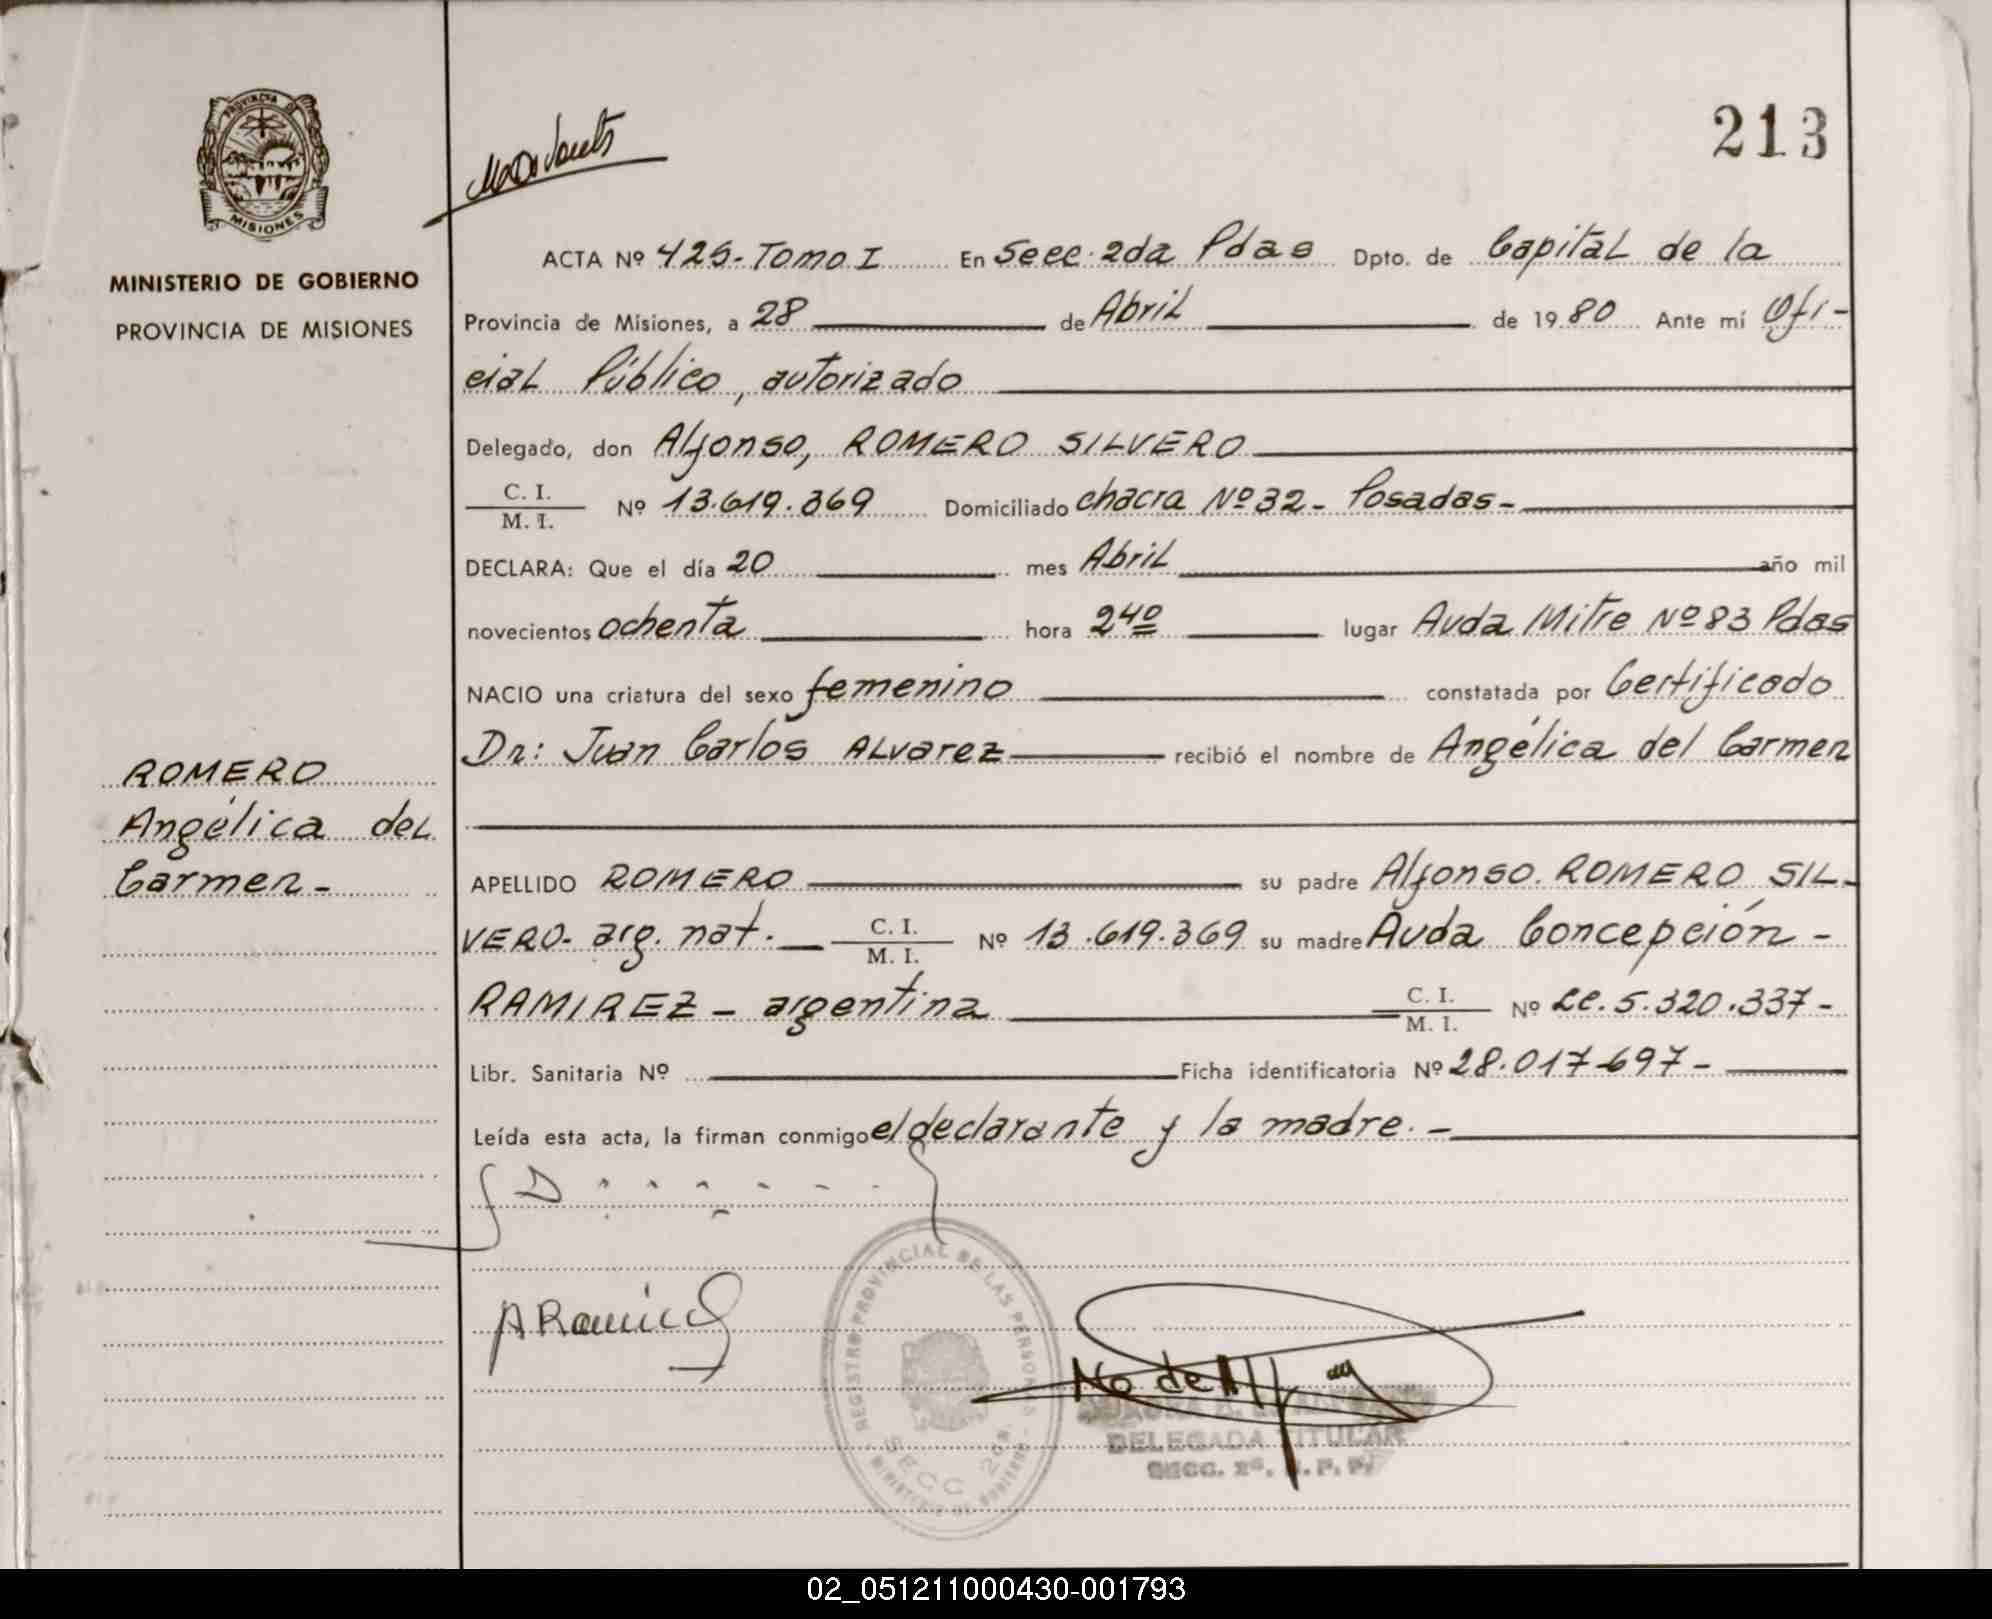 213
PROVINCIA DE
MISIONES
MINISTERIO DE GOBIERNO
PROVINCIA DE MISIONES
ACTA Nº 425- Tomo I En Secc. 2da Pdas Dpto. de Capital de la
Provincia de Misiones, a 28 de Abril de 1980 Ante mí Ofi-
cial Público, autorizado
Delegado, don Alfonso, ROMERO SILVERO
C. I.
M. I. Nº 13.619.369 Domiciliado chacra Nº 32- Posadas-
DECLARA: Que el día 20 mes Abril año mil
novecientos ochenta hora 24º lugar Avda Mitre Nº 83 Pdas
NACIO una criatura del sexo femenino constatada por Certificado
Dr: Juan Carlos ALvarez recibió el nombre de Angélica del Carmen
ROMERO
Angélica deL
Carmen-
APELLIDO ROMERO su padre Alfonso. ROMERO SIL-
VERO- arg. nat. C. I.
M. I. Nº 13.619.369 su madre Auda Concepción -
RAMIREZ - argentina C. I.
M. I. Nº Lc. 5.320.337-
Libr. Sanitaria Nº Ficha identificatoria Nº 28.017-697-
Leída esta acta, la firman conmigo el declarante y la madre. -
REGISTRO PROVINCIAL DE LAS PERSONAS
SECC 2da.
MINISTERIO DE GOBIERNO
DELEGADA TITULAR
SECC. 2ª.
02_051211000430-001793